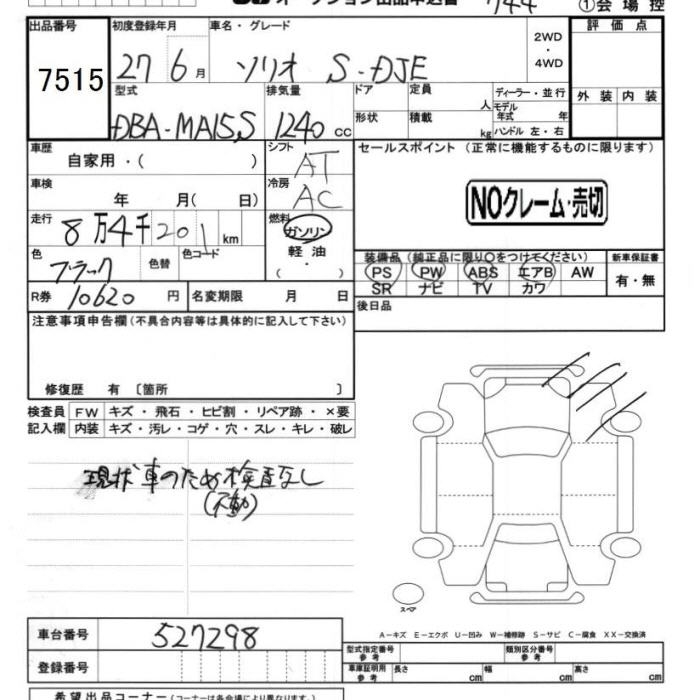 オークション出品申込書 744 ①会場控
出品番号 初度登録年月 車名・グレード 評価点
7515 27 6月 ソリオ S-DJE 2WD・4WD
型式 排気量 ドア 定員 人 ディーラー・並行 外装 内装
DBA-MA15S 1240 cc 形状 積載 kg モデル年式 年 ハンドル 左・右
車歴 自家用・( ) シフト AT セールスポイント (正常に機能するものに限ります)
車検 年 月( 日) 冷房 AC NOクレーム・売切
走行 8万4千201km 燃料 ガソリン 軽油 ( ・ )
色 ブラック 色替 色コード 装備品(純正品に限り○をつけてください) 新車保証書
PS PW ABS エアB AW 有・無
SR ナビ TV カワ
R券 10620 円 名変期限 月 日 後日品
注意事項申告欄(不具合内容等は具体的に記入して下さい)
修復歴 有 〔箇所 〕
検査員 FW キズ・飛石・ヒビ割・リペア跡・×要
記入欄 内装 キズ・汚レ・コゲ・穴・スレ・キレ・破レ
現状車のため検査なし
(不動)
スペア
A-キズ E-エクボ U-凹み W-補修跡 S-サビ C-腐食 XX-交換済
車台番号 527298
型式指定番号 参考 類別区分番号 参考
登録番号 車庫証明用 参考 長さ cm 幅 cm 高さ cm
希望出品コーナー(コーナーは各会場により異なります)